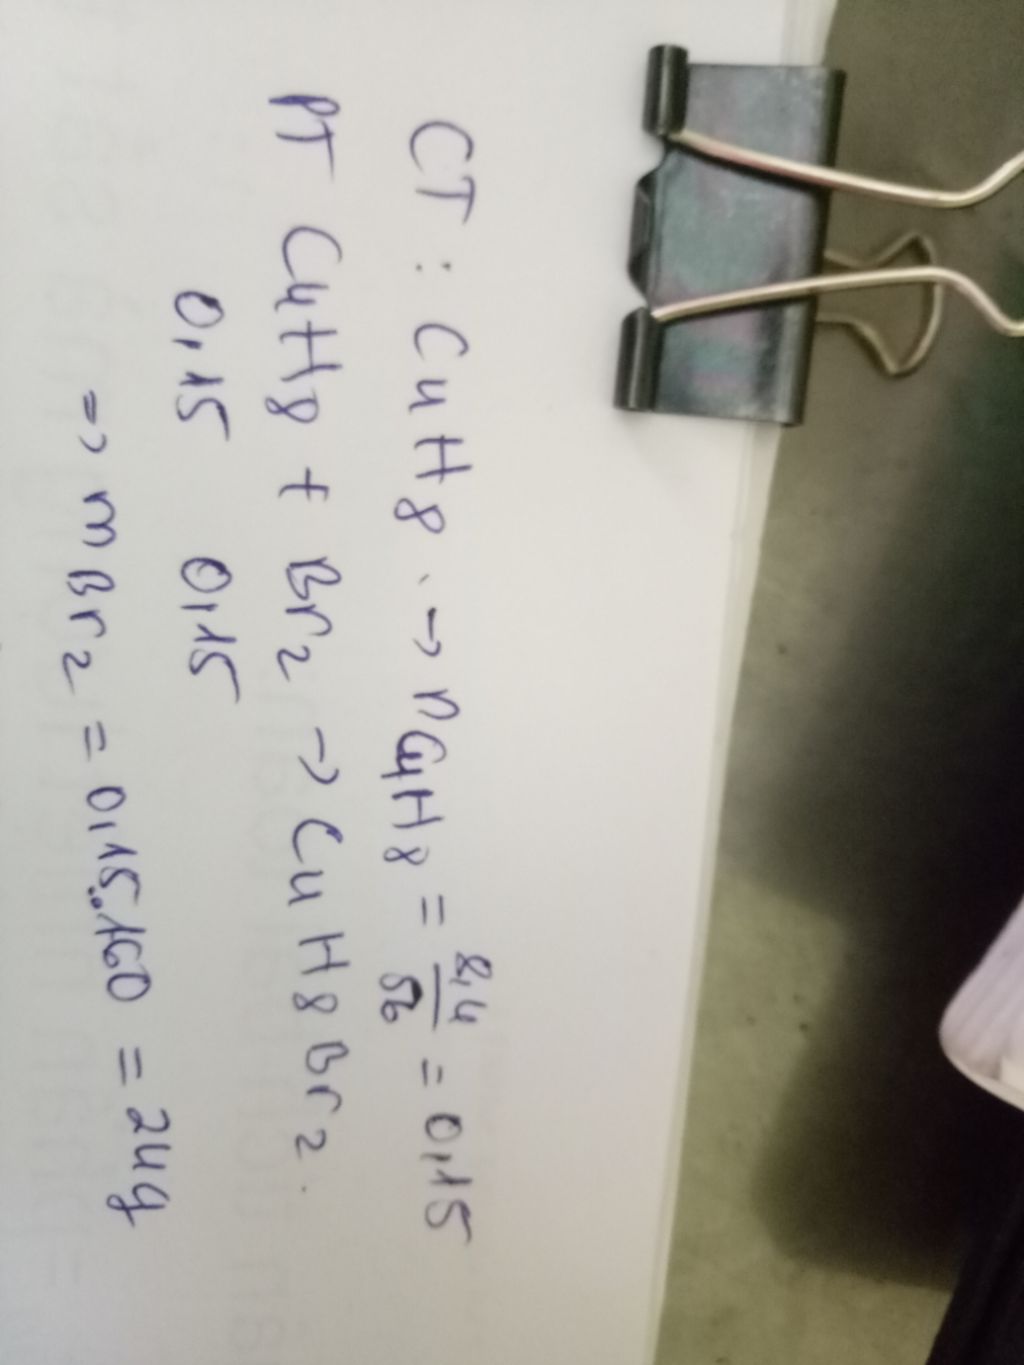 CT : C4H8 . → nC4H8 = 8,4/56 = 0,15
PT C4H8 + Br2 → C4H8Br2.
0,15 0,15
=> mBr2 = 0,15.160 = 24g